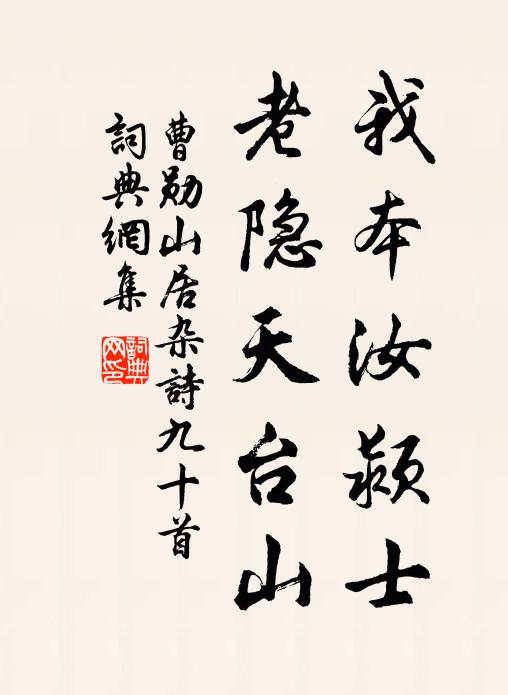 我本汝颍士
老隐天台山
曹勋山居杂詩九十首
詞典網集
詞典
网印